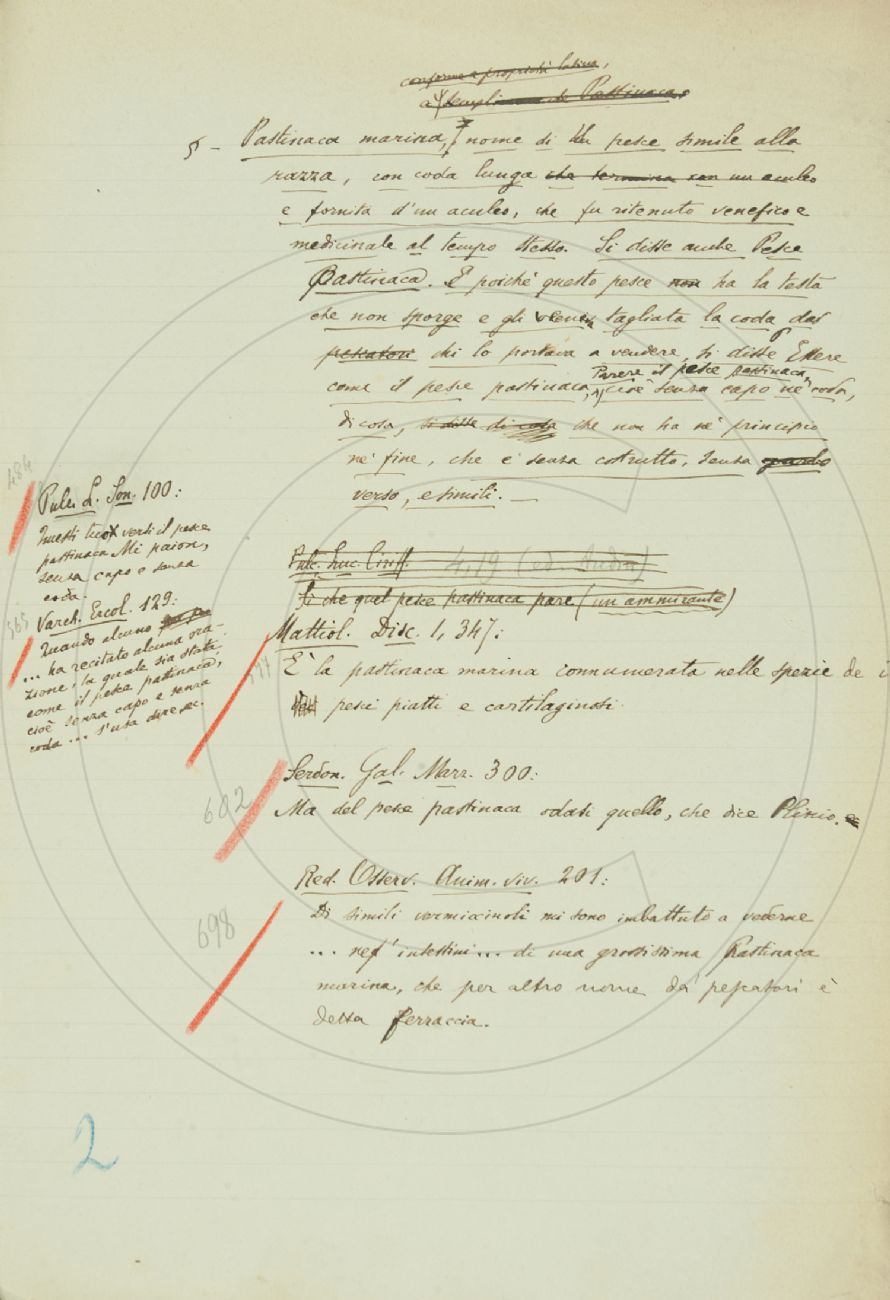 conforme a proprietà latina,
Pastinaca,
§ — Pastinaca marina, nome di un pesce simile alla
razza, con coda lunga che termina con un aculeo
e fornita d'un aculeo, che fu ritenuto venefico e
medicinale al tempo stesso. Si disse anche Pesce
Pastinaca. E poichè questo pesce non ha la testa
che non sporge e gli viene tagliata la coda da
pescatori chi lo portava a vendere, si disse Essere
Parere il pesce pastinaca,
come il pesce pastinaca, cioè senza capo nè coda,
di cosa, si disse di cosa che non ha nè principio
nè fine, che è senza costrutto, senza garbo
verso, e simili. —
484
Pulc. L. Son. 100:
Questi tuoi versi il pesce
pastinaca Mi paion,
senza capo e senza
coda.
565
Varch. Ercol. 129:
Quando alcuno
... ha recitato alcuna ora-
zione, la quale sia stata
come il pesce pastinaca,
cioè senza capo e senza
coda ... s'usa dire ec.
Pulc. Luc. Ciriff. 4,19 (ed. Audin)
Sì che quel pesce pastinaca pare (un ammirante)
Mattiol. Disc. 1, 347:
È la pastinaca marina connumerata nelle spezie de i
pesci piatti e cartilaginosi.
602
Serdon. Gal. Marz. 300:
Ma del pesce pastinaca odasi quello, che dice Plinio.
698
Red. Osserv. Anim. viv. 201:
Di simili vermicciuoli mi sono imbattuto a vederne
... negl' intestini ... di una grossissima Pastinaca
marina, che per altro nome da' pescatori è
detta ferraccia.
2